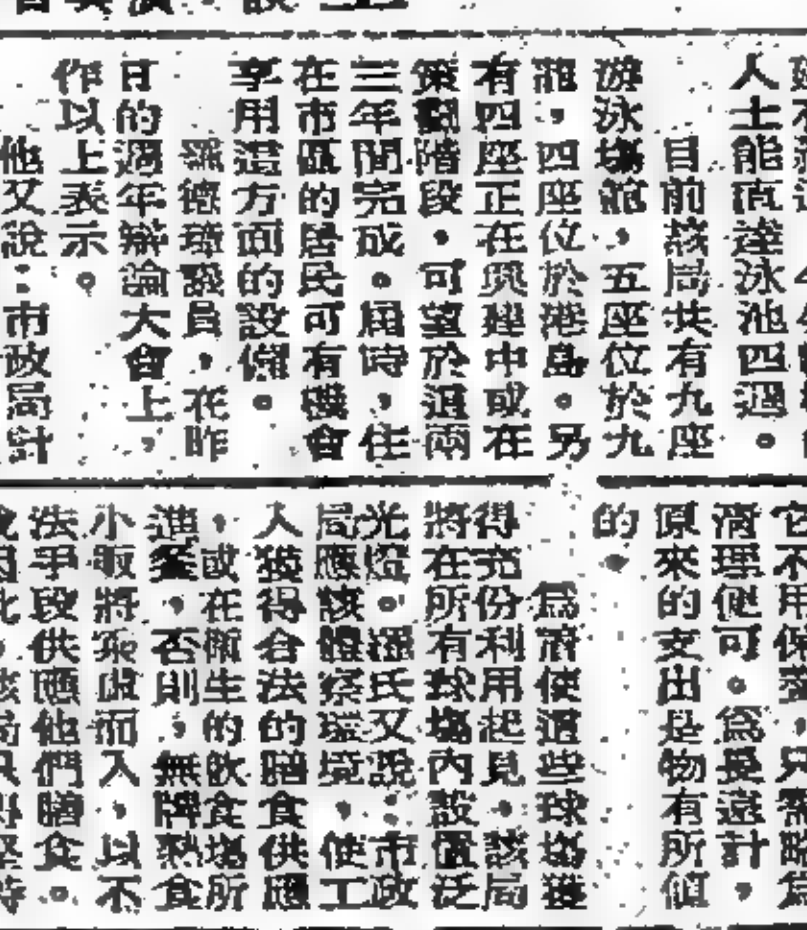 人士能直達泳池四週。
目前該局共有九座
游泳場館,五座位於九
龍,四座位於港島。另
有四座正在興建中或在
策劃階段。可望於這兩
三年間完成。屆時,住
在市區的居民可有機會
享用這方面的設備。
羅德琦議員,在昨
日的週年辯論大會上,
作以上表示。
他又說:市政局計
清理便可。為長遠計,
原來的支出是物有所值
的。
為着使這些球場獲
得充份利用起見,該局
將在所有球場內設置泛
光燈。溫氏又說:市政
局應該體察環境,使工
人獲得合法的膳食供應
,或在衛生的飲食場所
進餐,否則,無牌熱食
小販將乘虛而入,以不
法手段供應他們膳食。